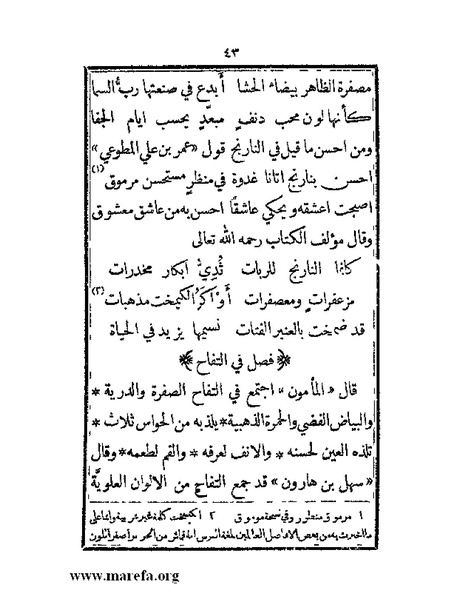 ٤٣
مصفرة الظاهر بيضاء الحشا أبدع في صنعتها ربُّ السما
كأنها لون محب دنف مبعّدٍ يحسب ايام الجفا
ومن احسن ما قيل في النارنج قول «عمر بن علي المطوعي»
احسن بنارنج اتانا غدوة في منظرٍ مستحسن مرموق (١)
اصبحت اعشقه ويحكي عاشقًا احسن به من عاشق معشوق
وقال مؤلف الكتاب رحمه الله تعالى
كانما النارنج للربات ثُديُّ ابكار مخدرات
مزعفراتٍ ومعصفرات أو أكَرُ الكيمخت مذهبات (٢)
قد ضمخت بالعنبر الفتات نسيمها يزيد في الحياة
﴿ فصل في التفاح ﴾
قال «المأمون» اجتمع في التفاح الصفرة والدرية *
والبياض الفضي والحمرة الذهبية * يلذ به من الحواس ثلاث *
تلذه العين لحسنه * والانف لعرفه * والفم لطعمه * وقال
«سهل بن هارون» قد جمع التفاح من الالوان العلويَّة
١ مرموق منظور وفي نسخة موموق ٢ الكيمخت كلمة غير عربية
www.marefa.org